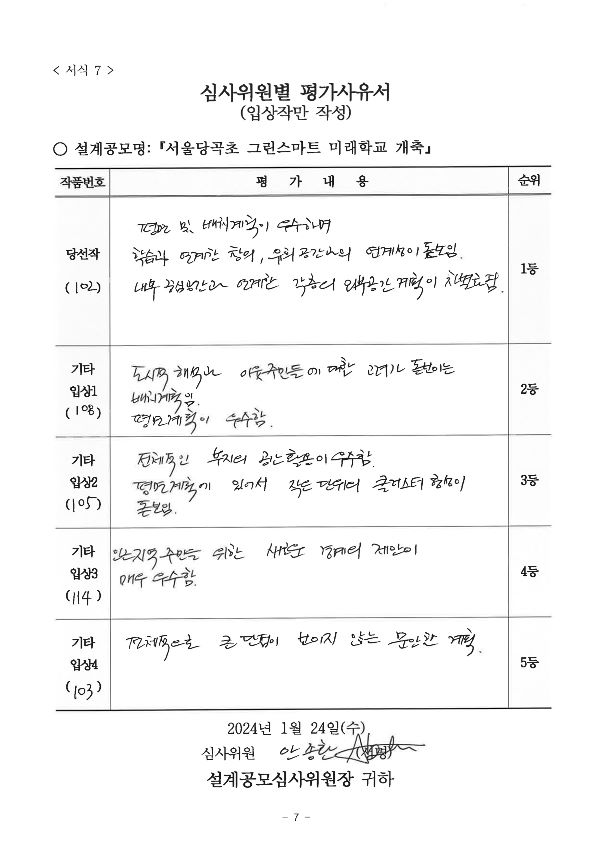 < 서식 7 >
심사위원별 평가사유서
(입상작만 작성)
○ 설계공모명: 『서울당곡초 그린스마트 미래학교 개축』
작품번호 평 가 내 용 순위
당선작
(102)
평면 및 배치계획이 우수하며
학습과 연계한 창의, 유희공간과의 연계성이 돋보임.
내부 중심공간과 연계한 각층의 외부공간계획이 차별화됨.
1등
기타
입상1
(108)
도시적 해석과 이웃주민들에 대한 고려가 돋보이는
배치계획임.
평면계획이 우수함.
2등
기타
입상2
(105)
전체적인 부지의 공간활용이 우수함.
평면계획에 있어서 작은 단위의 클러스터 형성이
돋보임.
3등
기타
입상3
(114)
지역주민을 위한 새로운 경계의 제안이
매우 우수함.
4등
기타
입상4
(103)
전체적으로 큰 단점이 보이지 않는 무난한 계획.
5등
2024년 1월 24일(수)
심사위원 안종환
설계공모심사위원장 귀하
- 7 -